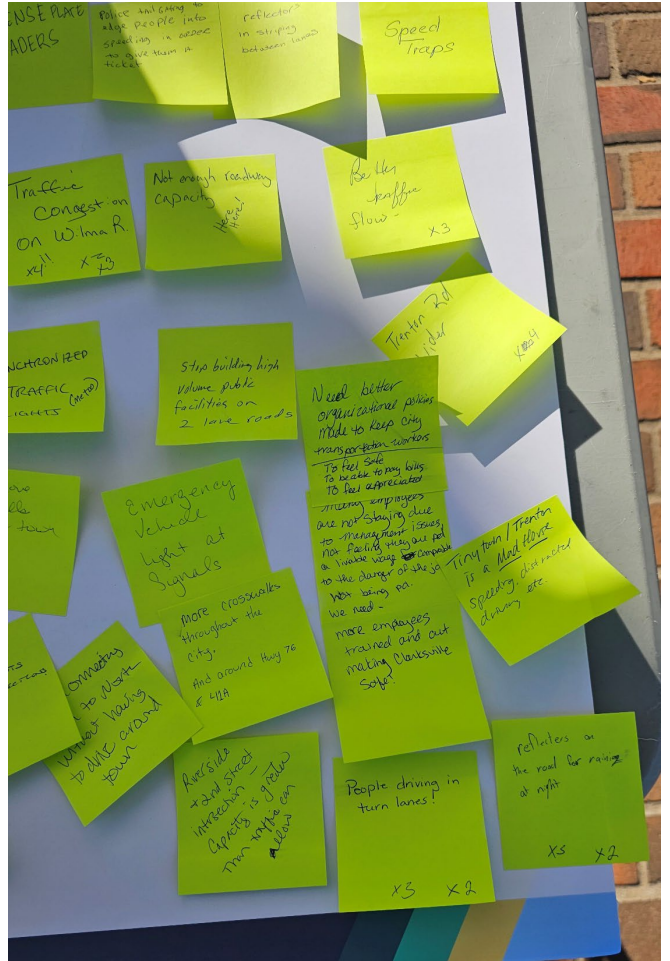 ENSE PLATE
ADERS
Police tailgating to
edge people into
speeding in order
to give them a
ticket
reflectors
in striping
between lanes
Speed
Traps
Traffic
Congestion
on Wilma R.
x4 !! x2 x3
Not enough roadway
capacity
Here
Here!
Better
traffic
flow -
x3
Trenton Rd
ider
x4
NCHRONIZED
TRAFFIC (METRO)
IGHTS
Stop building high
volume public
facilities on
2 lane roads
Need better
organizational policies
made to keep city
transportation workers
To feel safe
To be able to pay bills
To feel appreciated
many employees
are not staying due
to management issues,
not feeling they are paid
a livable wage comparable
to the danger of the jo
Not being pa.
we need -
more employees
trained and out
making Clarksville
Safe!
town
Emergency
Vehicle
Light at
Signals
Tinytown / Trenton
is a Mad House
speeding, distracted
driving etc.
more crosswalks
throughout the
city.
And around Hwy 76
& 41A
onnecting
to North
without having
to drive around
town
Riverside
& 2nd Street
intrsection -
Capacity is greater
than traffic can
allow
People driving in
turn lanes!
x3 x2
reflecters on
the road for rain
at night
x5 x2